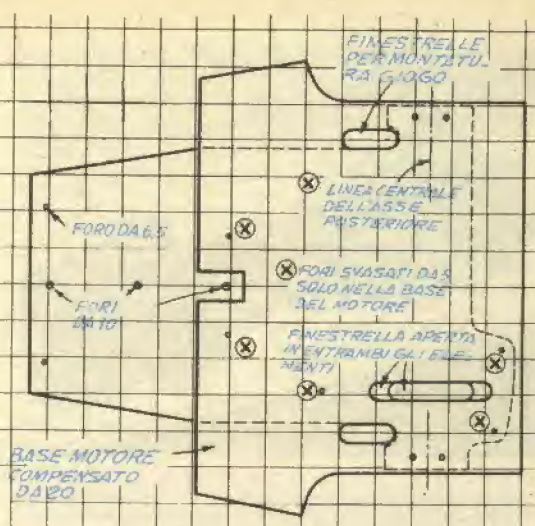 FINESTRELLE
PER MONTATU-
RA GIOGO
LINEA CENTRALE
DELL'ASSE
POSTERIORE
FORO DA 6,5
FORI
DA 10
FORI SVASATI DA 5
SOLO NELLA BASE
DEL MOTORE
FINESTRELLA APERTA
IN ENTRAMBI GLI ELE-
MENTI
BASE MOTORE
COMPENSATO
DA 20